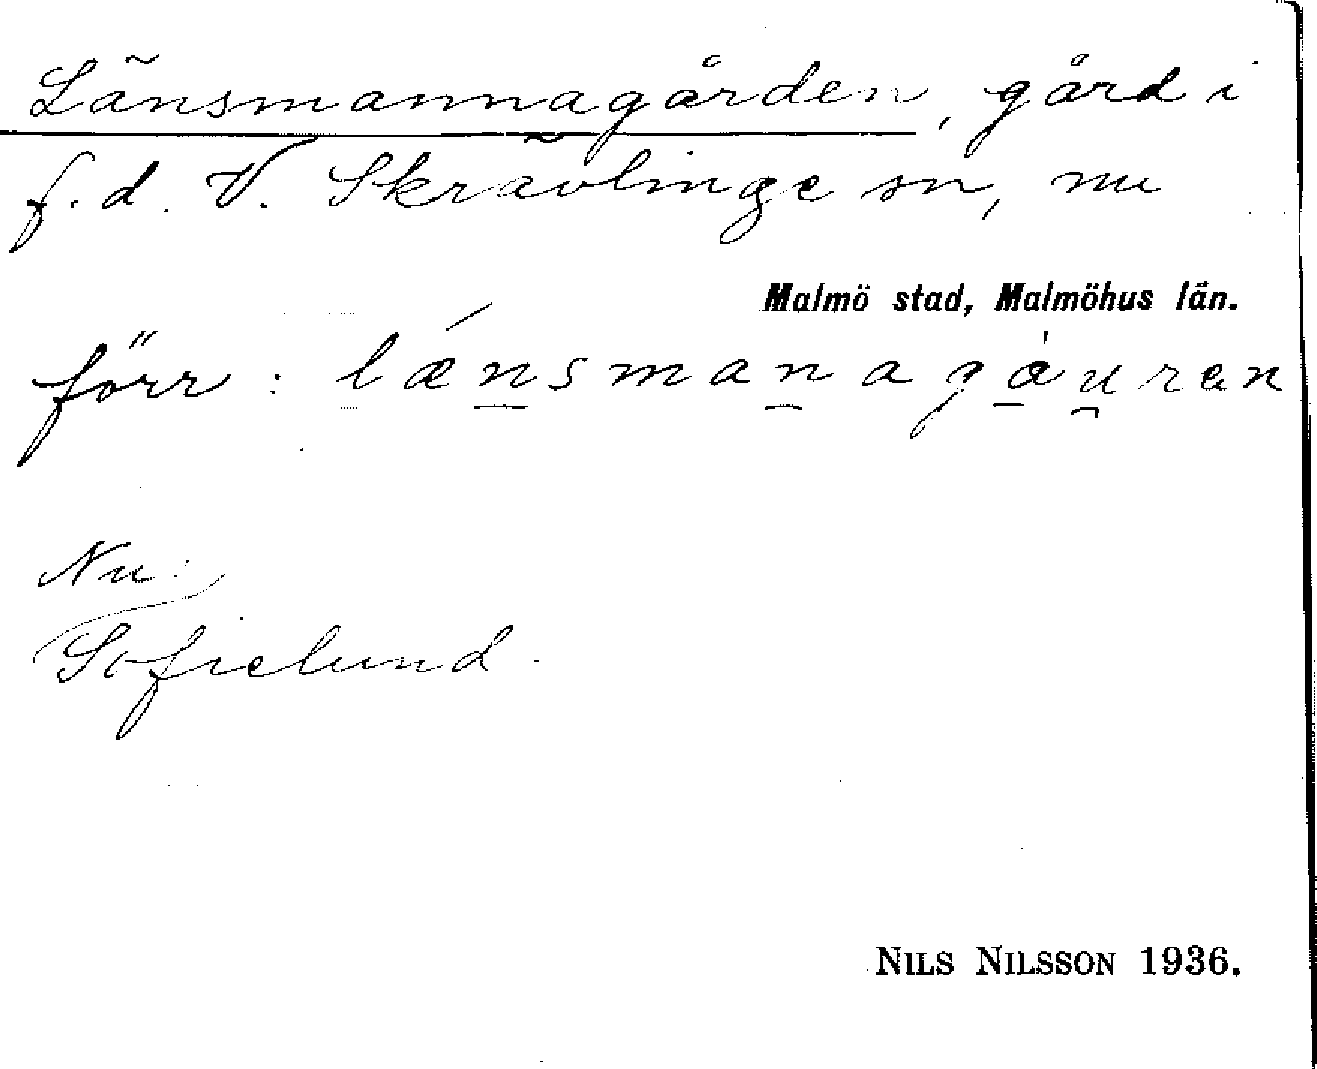 Länsmannagården, gård i
f.d. V. Skrävlinge sn, nu
Malmö stad, Malmöhus län.
förr: lǽn̲sman̲agá̲u̯ren
Nu:
Sofielund.
NILS NILSSON 1936.